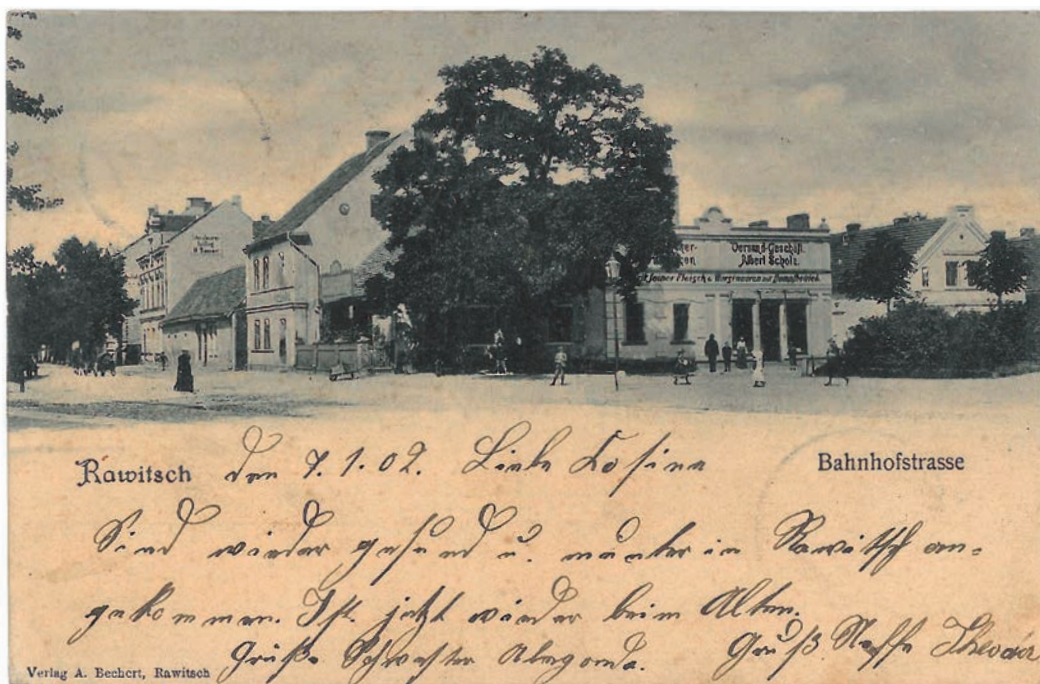 Versand-Geschäft.
Albert Scholz.
feiner Fleisch- u. Wurstwaren mit Dampfbetrieb
Rawitsch den 7.1.02. Liebe Cosine
Bahnhofstrasse
Sind wieder gesund u. munter in Rawitsch an-
gekommen. Ist jetzt wieder beim Alten.
Grüße Schwester Aldegonda.
Gruß Neffe Theodor
Verlag A. Bechert, Rawitsch